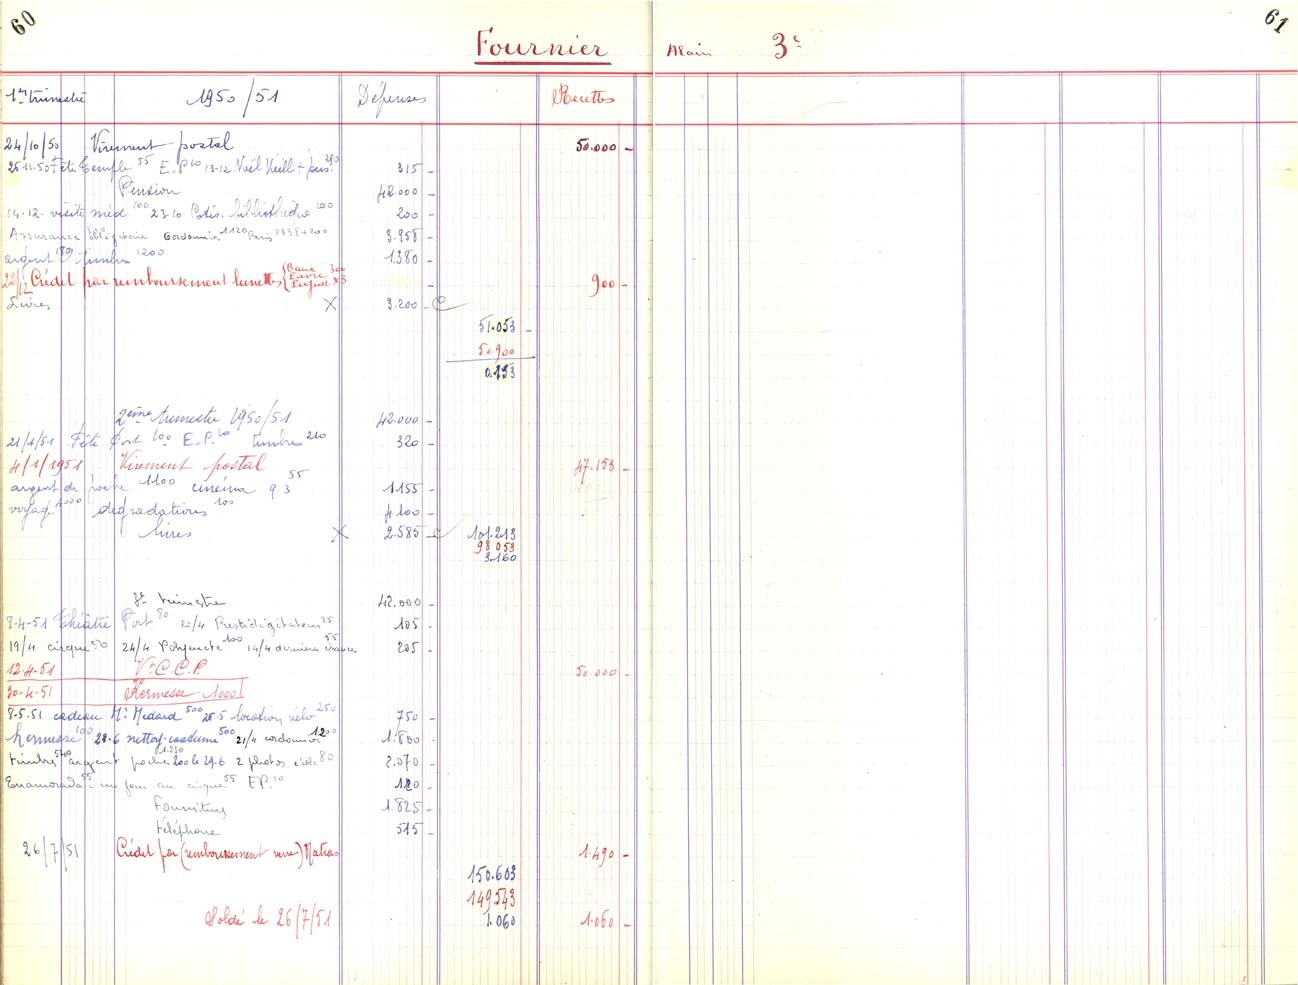 60
Fournier Alain 3e
61
1er trimestre 1950/51 Dépenses Recettes
24/10/50 Virement postal 50.000 -
25-11-50 Fête Temple 55 E.P 10 13-12 Noël + 315 -
Pension 42.000 -
14-12- visite méd 100 23-10 Cotis. bibliothèque 100 200 -
Assurance obligatoire Cordonnier 1120 Paris 2338+200 3.958 -
argent 180 timbre 1200 1380 -
22/12 Crédit par remboursement lunettes 300 x3 900 -
Livres X 3.200 -
51.053 -
50.900
0.153
2ème trimestre 1950/51 42.000 -
21/1/51 Fête Port 100 E.P. 10 timbres 210 320 -
4/1/1951 Virement postal 47.153 -
argent de poche 1100 cinéma 9 3 55 1155 -
voyage 4000 dégradations 100 4.100 -
livres X 2.585 - 101.213
98 053
3.160
3e trimestre 42.000 -
8-4-51 théâtre Port 80 20/4 Prestidigitateur 25 105 -
19/4 cirque 50 24/4 Polyeucte 100 14/4 dernière 55 205 -
12-4-51 Vt C.C.P. 50.000 -
30-4-51 Kermesse 1000
8-5.51 cadeau Mr Medard 500 28-5 location vélo 250 750 -
kermesse 100 28-6 nettoy. costume 500 21/4 cordonnier 1200 1.800 -
timbres 540 argent poche 1.250 200 le 29.6 2 photos 80 2.070 -
Enamorada 55 un jour au cirque 55 EP. 10 120 -
Fournitures 1.825 -
téléphone 515 -
26/7/51 Crédit par (remboursement verre) Matras 1.490 -
150.603
149543
1.060
Soldé le 26/7/51 1.060 -